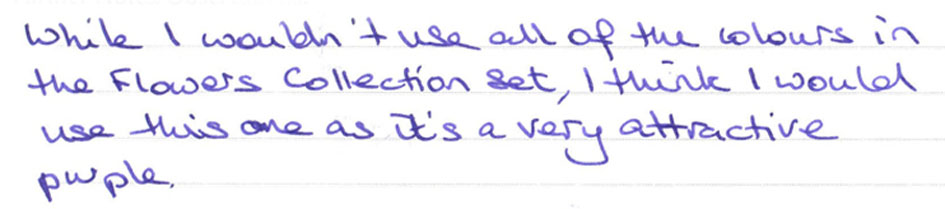 While I wouldn't use all of the colours in
the Flowers Collection set, I think I would
use this one as it's a very attractive
purple.